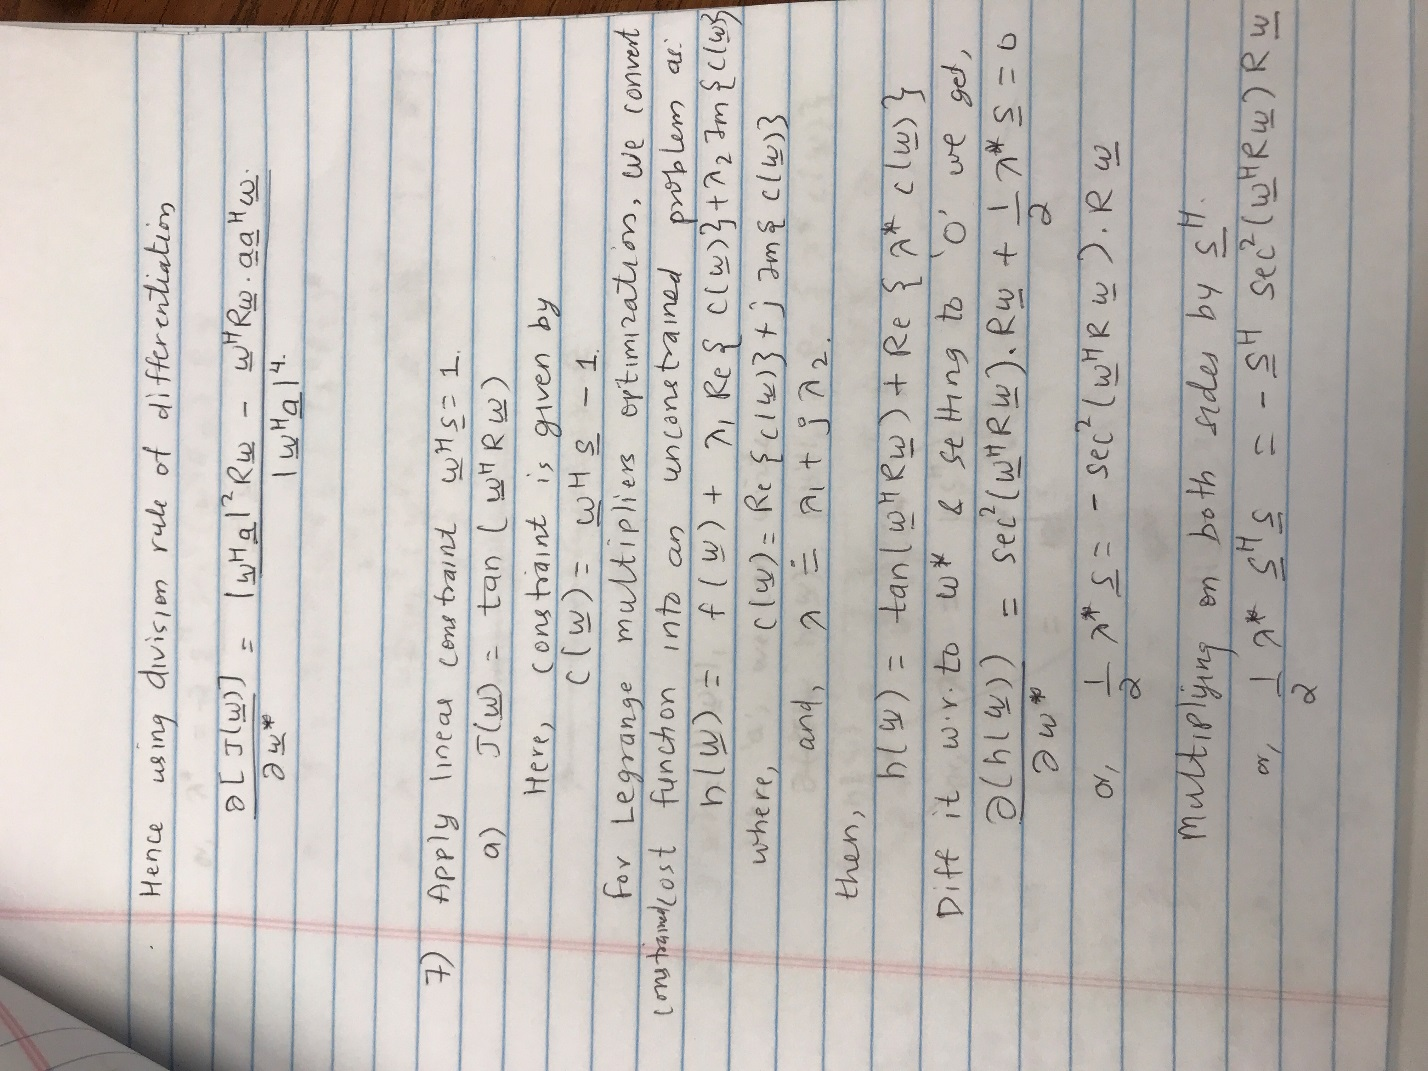 Hence using division rule of differentiation
∂[J(w̲)] / ∂w̲* = (|w̲ᴴa̲|² Rw̲ − w̲ᴴRw̲ · a̲a̲ᴴw̲.) / |w̲ᴴa̲|⁴.
7) Apply linear constraint w̲ᴴs̲ = 1.
a) J(w̲) = tan(w̲ᴴRw̲)
Here, constraint is given by
c(w̲) = w̲ᴴs̲ − 1.
For Legrange multipliers optimization, we convert
constrained cost function into an unconstrained problem as:
h(w̲) = f(w̲) + λ₁ Re{c(w̲)} + λ₂ Im{c(w̲)}
where, c(w̲) = Re{c(w̲)} + j Im{c(w̲)}
and, λ = λ₁ + jλ₂.
then,
h(w̲) = tan(w̲ᴴRw̲) + Re{λ* c(w̲)}
Diff it w.r.to w* & setting to '0' we get,
∂(h(w̲)) / ∂w̲* = sec²(w̲ᴴRw̲).Rw̲ + 1/2 λ* s̲ = 0
or, 1/2 λ* s̲ = − sec²(w̲ᴴRw̲).Rw̲
Multiplying on both sides by s̲ᴴ.
or, 1/2 λ* s̲ᴴs̲ = − s̲ᴴ sec²(w̲ᴴRw̲)Rw̲